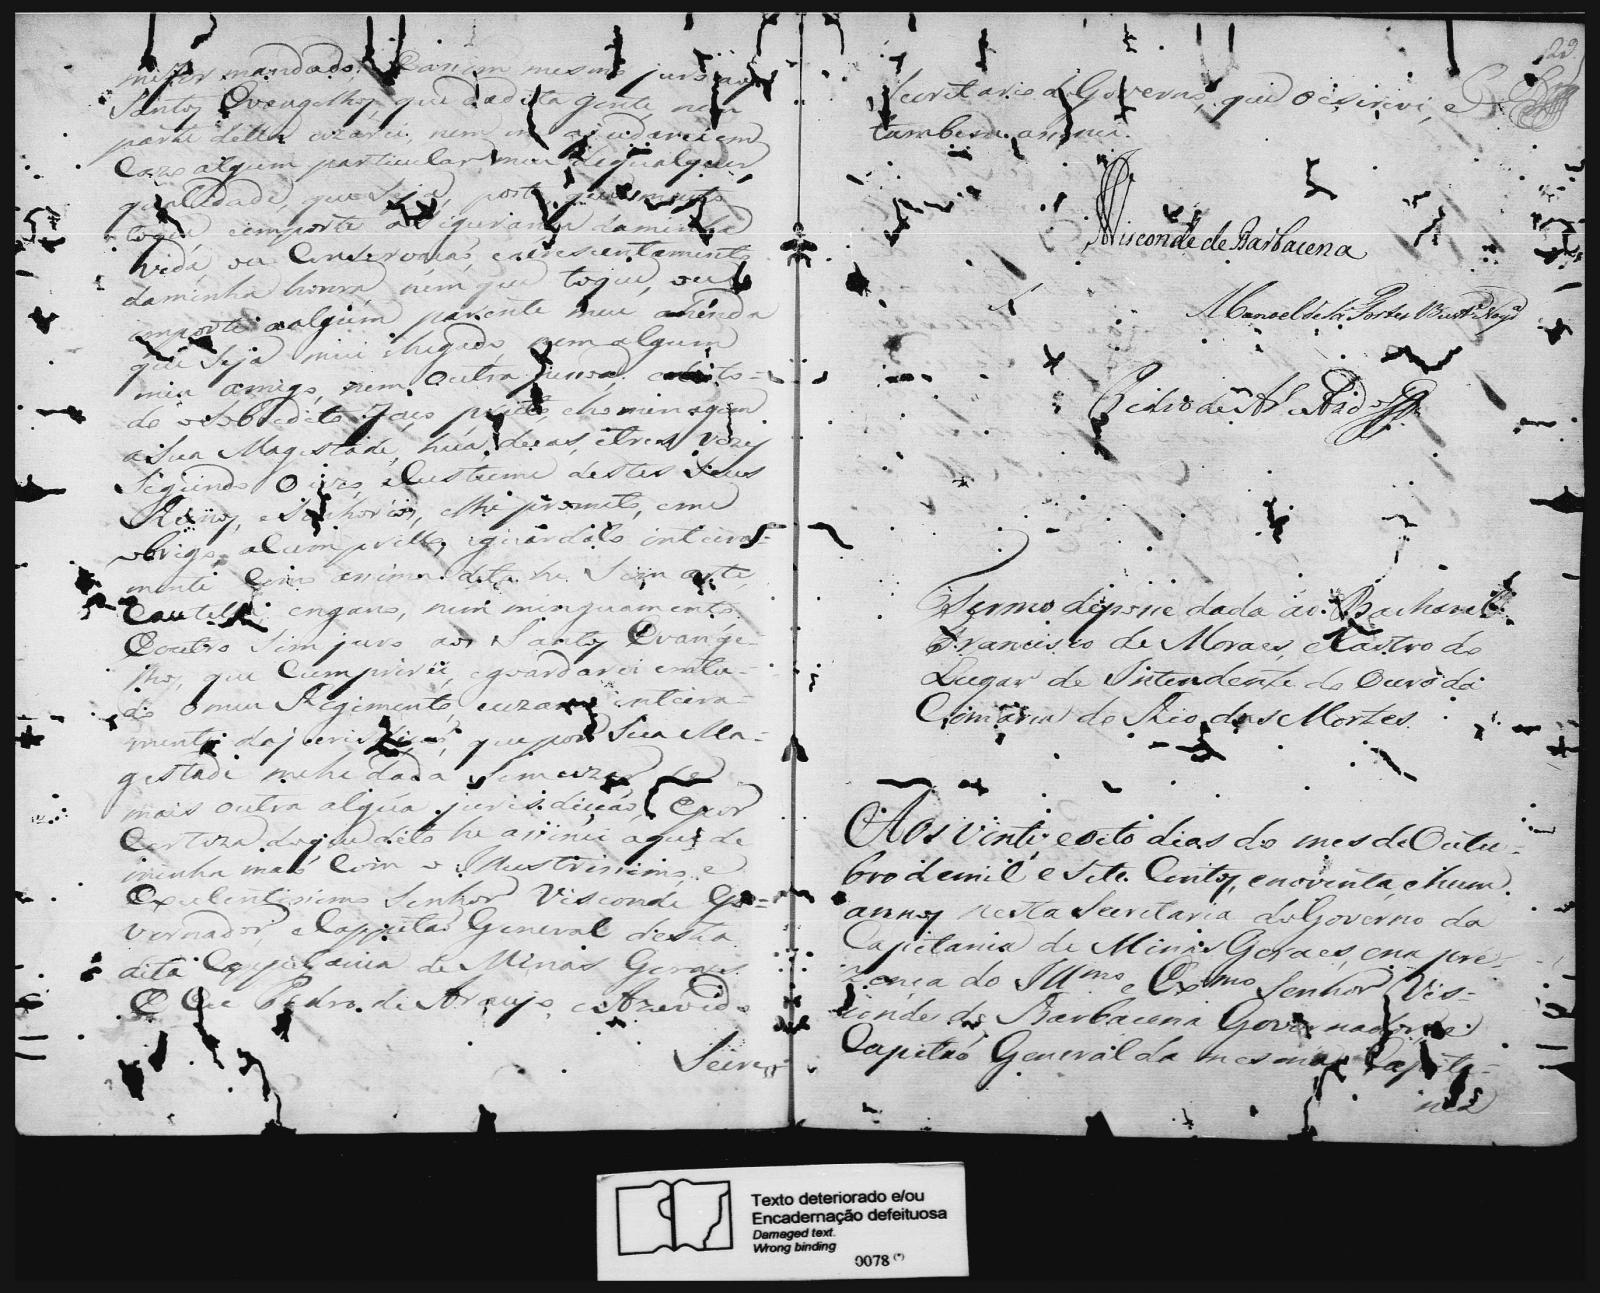 mandado. E assim mesmo juro aos
Santos Evangelhos, que da dita gente, nem
parte della uzarei, nem me ajudarei em
Cazo algum particular meu de qualquer
qualidade, que seja, posto que muito
toque e importe a Segurança da minha
vida, ou Conservação, e acrescentamento
da minha honra, nem que toque, ou
importe a algum parente meu ainda
que Seja mui chegado, nem algum
meu amigo, nem outra pessoa, e de to=
do o sobredito faço preito, e homenagem
a Sua Magestade, huã, duas, e tres vezes
Segundo o uzo, e Custume destes Seus
Reinos, e Senhorios, e lhe prometo, e me
obrigo a cumprillo, e guardalo inteira=
mente Como assima dito he, Sem arte,
Cautella, engano, nem minguamento.
E outro Sim juro aos Santos Evange=
lhos, que Cumprirei, e guardarei em tu=
do o meu Regimento, e uzarei inteira=
mente da jurisdição, que por Sua Ma=
gestade me he dada, Sem uzar de
mais outra algũa jurisdição, E por
Certeza do que dito he assinei aqui de
minha mão Com o Illustrissimo, e
Excelentissimo Senhor Visconde Go=
vernador, e Cappitão General desta
dita Capitania de Minas Geraes.
E Eu Pedro de Araujo, e Azevedo
Secre=
22
Secretario do Governo, que o escrevi, e
tambem assinei.
Visconde de Barbacena
Manoel
Pedro de Ar.º e Azd.º
Termo de posse dada ao Bacharel
Francisco de Moraes, e Castro do
Lugar de Intendente do Ouro da
Comarca do Rio das Mortes.
Aos vinte e oito dias do mes de Outu=
bro de mil e Sete Centos, e noventa, e hum
annos nesta Secretaria do Governo da
Capitania de Minas Geraes, e na pre=
zença do Ill.mo e Ex.mo Senhor Vis=
conde de Barbacena Governador, e
Capitão General da mesma Capita=
nia
Texto deteriorado e/ou
Encadernação defeituosa
Damaged text.
Wrong binding
0078 (*)